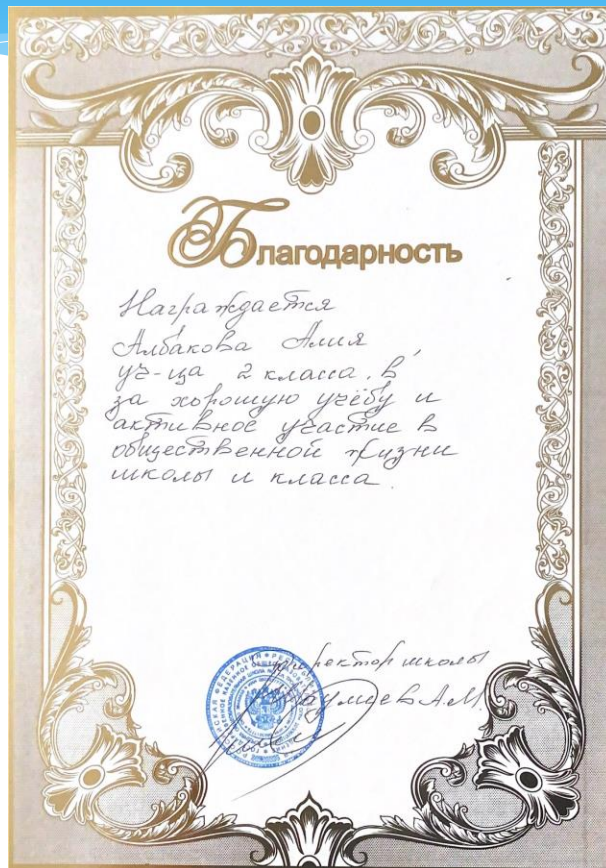 Благодарность
Награждается
Албакова Алия
уч-ца 2 класса "в"
за хорошую учёбу и
активное участие в
общественной жизни
школы и класса.
Директор школы
А.М.
РОССИЙСКАЯ ФЕДЕРАЦИЯ